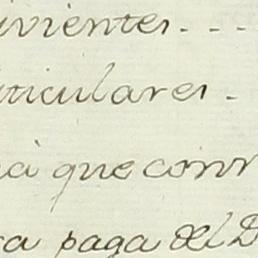 vivientes...
ticulares.
a que conr
sa paga del D